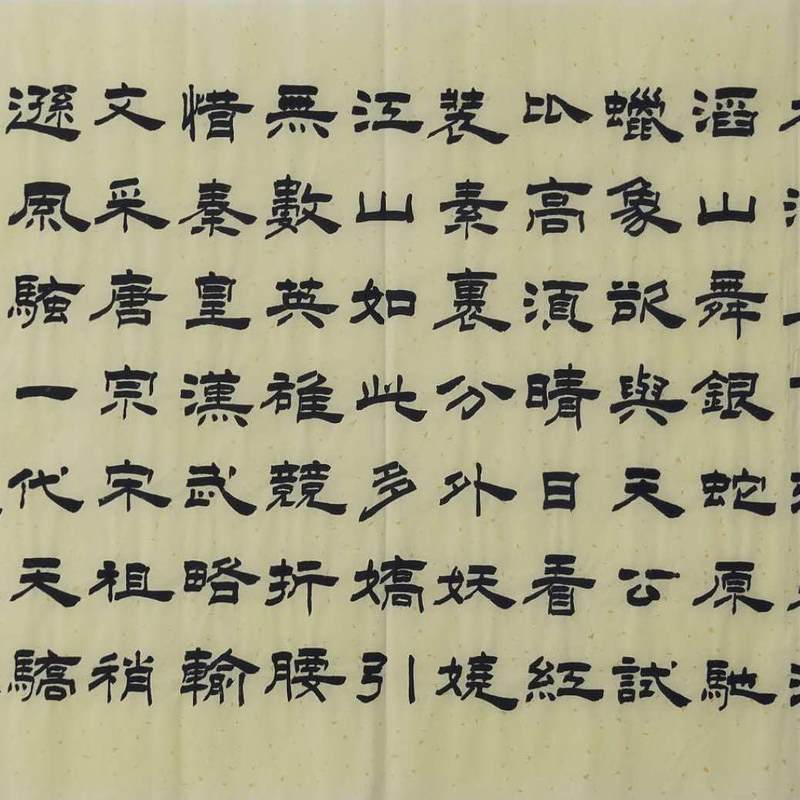 滔山舞銀蛇原馳
蠟象欲與天公試
比高須晴日看紅
裝素裹分外妖嬈
江山如此多嬌引
無數英雄競折腰
惜秦皇漢武略輸
文采唐宗宋祖稍
遜風騷一代天驕